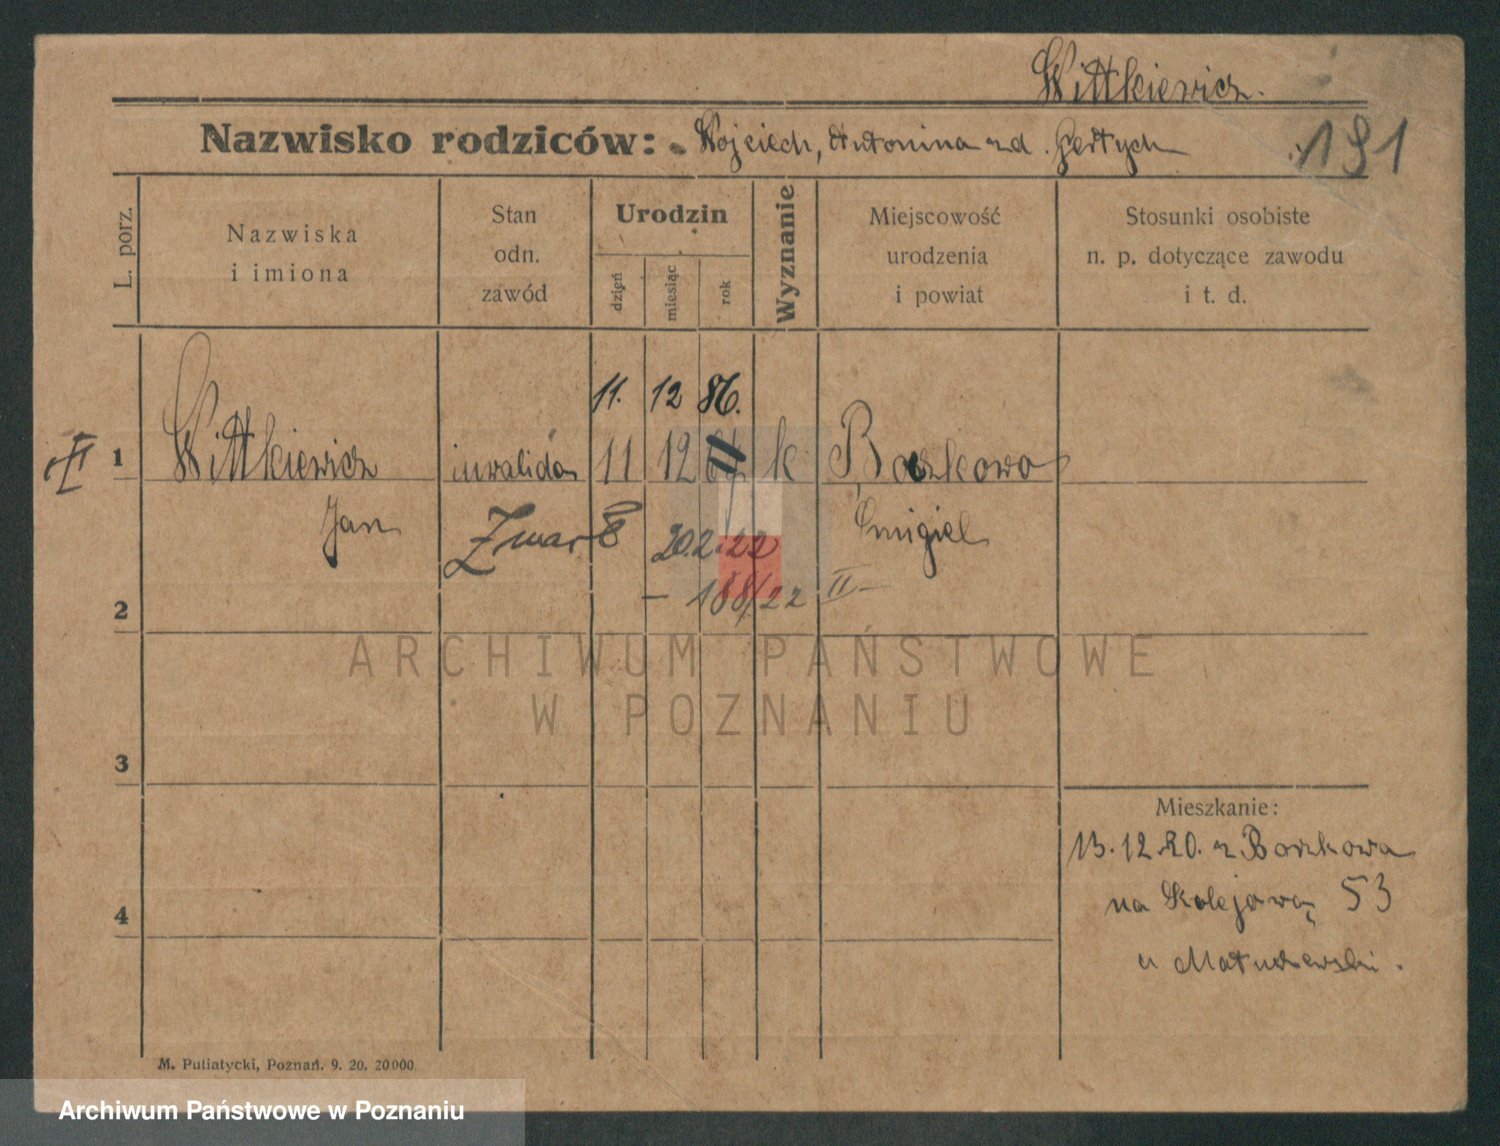 Wittkiewicz.
Nazwisko rodziców: Wojciech, Antonina zd. Gertych
191
L. porz.
Nazwiska
i imiona
Stan
odn.
zawód
Urodzin
dzień
miesiąc
rok
Wyznanie
Miejscowość
urodzenia
i powiat
Stosunki osobiste
n. p. dotyczące zawodu
i t. d.
11. 12 86.
1 Wittkiewicz inwalida 11 12 k Boszkowo
Jan Śmigiel
Zmarł 20.2.22
— 188/22 II —
2
ARCHIWUM PAŃSTWOWE
W POZNANIU
3
Mieszkanie:
13.12.20. z Boszkowa
na Kolejową 53
u Matuszewski.
4
M. Putiatycki, Poznań. 9. 20. 20000.
Archiwum Państwowe w Poznaniu